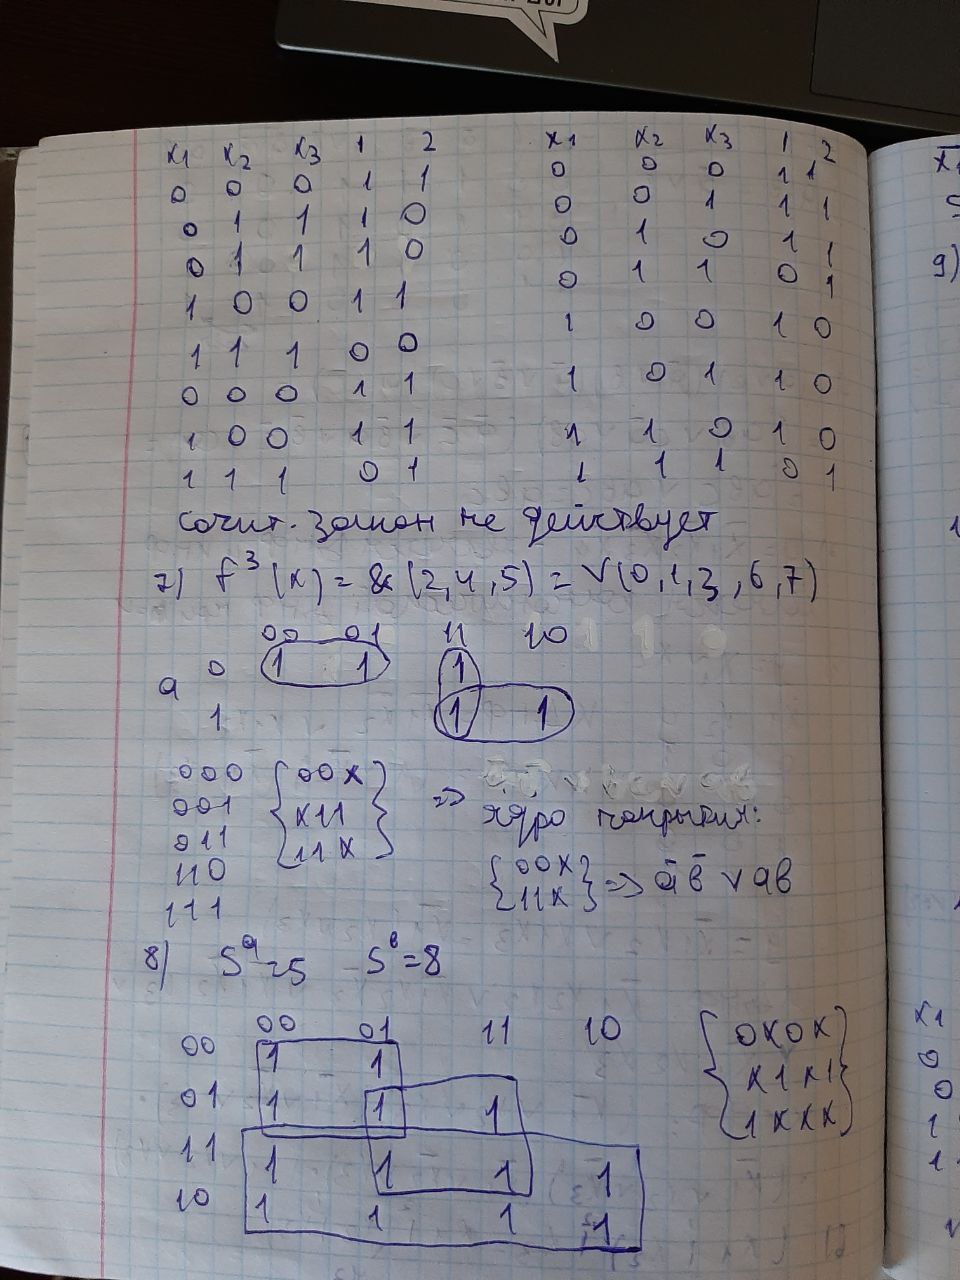 x1 x2 x3 1 2
0 0 0 1 1
0 1 1 1 0
0 1 1 1 0
1 0 0 1 1
1 1 1 0 0
0 0 0 1 1
1 0 0 1 1
1 1 1 0 1
x1 x2 x3 1 2
0 0 0 1 1
0 0 1 1 1
0 1 0 1 1
0 1 1 0 1
1 0 0 1 0
1 0 1 1 0
1 1 0 1 0
1 1 1 0 1
сочит. закон не действует
7) f³(x) = & (2,4,5) = V(0,1,3,6,7)
00 01 11 10
a 0 1 1 1
1 1 1
000 {00x
001 x11
011 11x}
110
111
=> ядро покрытия:
{00x
11x} => a̅ b̅ v ab
8) Sᵃ=5 Sᵇ=8
00 01 11 10
00 1 1
01 1 1 1
11 1 1 1 1
10 1 1 1 1
{0x0x
x1x1
1xxx}
9)
x1
0
0
1
1